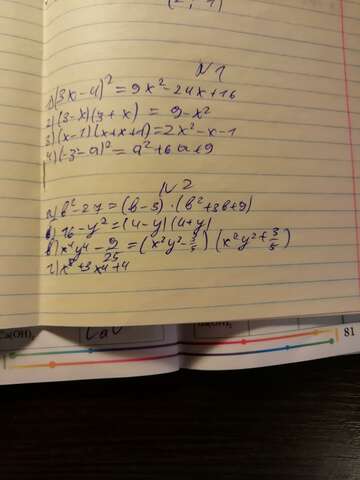 N1
1) (3x-4)² = 9x²-24x+16
2) (3-x)(3+x) = 9-x²
3) (x-1)(x+x+1) = 2x²-x-1
4) (-3-a)² = a²+6a+9
N2
а) b²-27 = (b-3)·(b²+3b+9)
б) 16-y² = (4-y)(4+y)
в) x⁴y⁴ - 9/25 = (x²y² - 3/5)(x²y² + 3/5)
г) x⁸+3x4+4
Ca(OH)₂
81